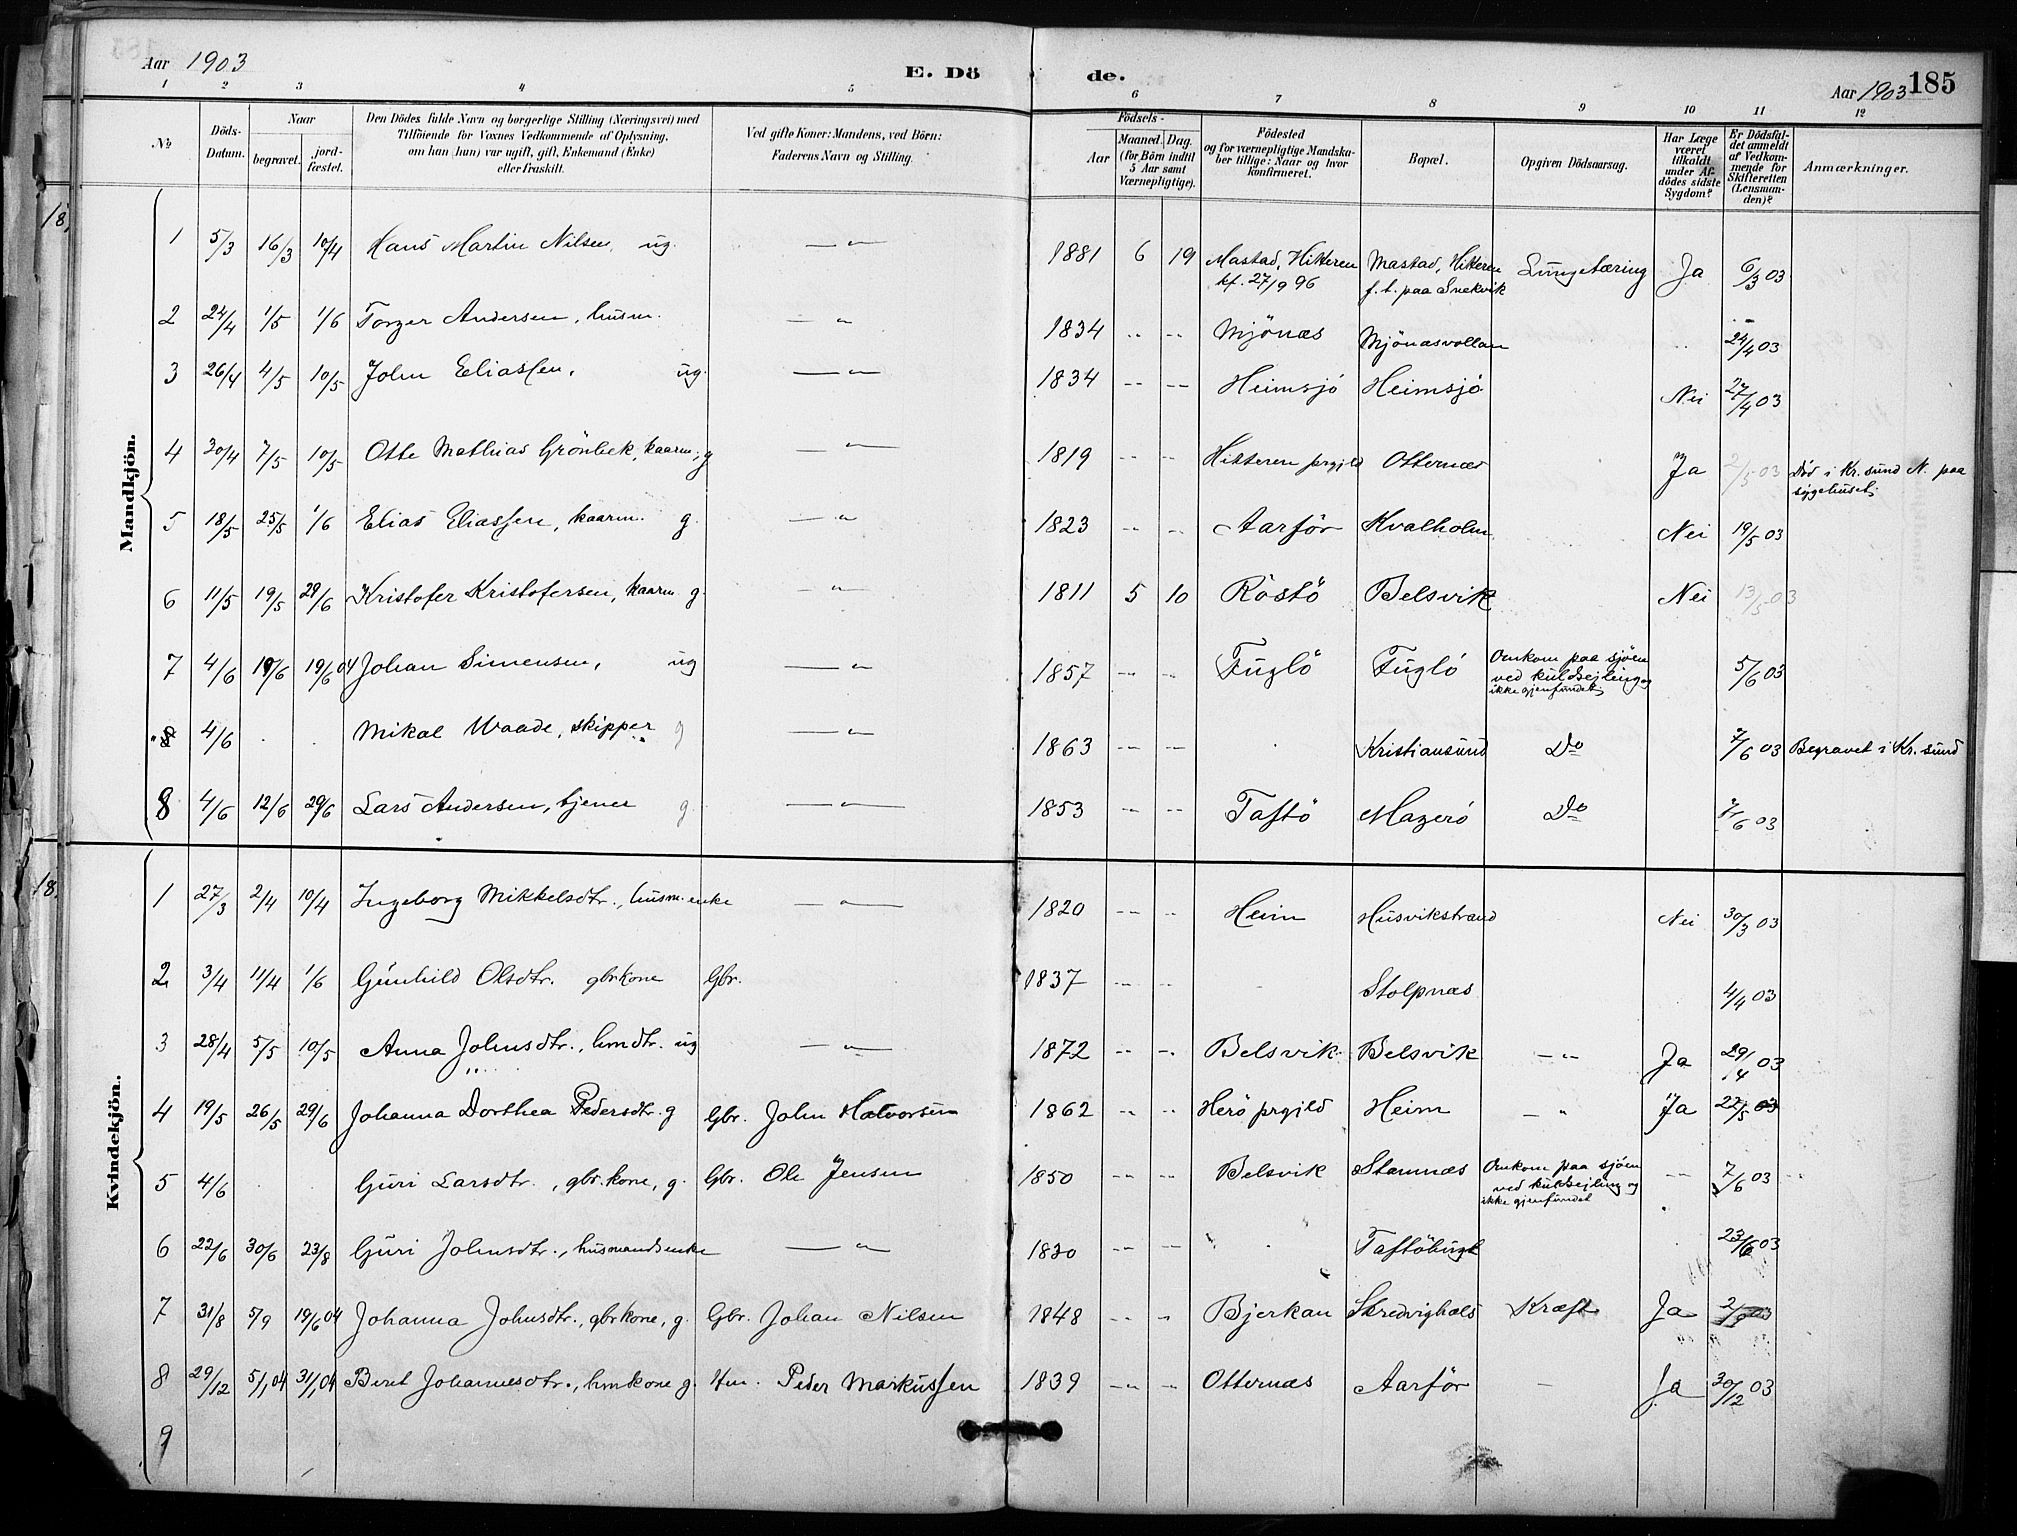 Aar 1903 E. Dö de. Aar 1903 185
1 2 3 4 5 6 7 8 9 10 11 12
№ Döds-Datum. Naar begravet. jord-fæstet. Den Dödes fulde Navn og borgerlige Stilling (Næringsvei) med Tilföiende for Voxnes Vedkommende af Oplysning, om han (hun) var ugift, gift, Enkemand (Enke) eller fraskilt. Ved gifte Koner: Mandens, ved Börn: Faderens Navn og Stilling. Födsels- Aar Maaned. Dag. (for Börn indtil 5 Aar samt Værnepligtige). Födested og for værnepligtige Mandskaber tillige: Naar og hvor konfirmeret. Bopæl. Opgiven Dödsaarsag. Har Læge været tilkaldt under Afdödes sidste Sygdom? Er Dödsfaldet anmeldt af Vedkommende for Skifteretten (Lensmanden)? Anmærkninger.
18
Mandkjön.
1 5/3 16/3 10/4 Hans Martin Nilsen, ug. — " — 1881 6 19 Mastad, Hitteren kf. 27/9 96 Mastad, Hitteren f. t. paa Snekvik Lungetæring Ja 6/3 03
2 24/4 1/5 1/6 Torger Andersen, husm. — " 1834 -- -- Mjönæs Mjönæsvollan .. 24/4 03
3 26/4 4/5 10/5 John Eliassen, ug. — " — 1834 -- -- Heimsjö Heimsjö Nei 27/4 03
4 30/4 7/5 10/5 Otte Mathias Grönbek, kaarm, g — " — 1819 -- -- Hitteren prgjld Otternæs Ja 2/5 03 Död i Kr.sund N. paa sygehuset.
5 18/5 25/5 1/6 Elias Eliassen, kaarm. g. — " 1823 -- -- Aarför Kvalholm Nei 19/5 03
6 11/5 19/5 29/6 Kristofer Kristofersen, kaarm g. — " 1811 5 10 Röstö Belsvik Nei 13/5 03
7 4/6 19/6 19/6 04 Johan Simensen, ug — " 1857 -- -- Fuglö Fuglö Omkom paa sjöen ved kuldsejling og ikke gjenfundet 5/6 03
"8 4/6 . . Mikal Waade, skipper g — " 1863 -- -- . Kristiansund Do 7/6 03 Begravet i Kr.sund
8 4/6 12/6 29/6 Lars Andersen, tjener g. — " — 1853 -- -- Taftö Magerö Do 7/6 03
18
Kvindekjön.
1 27/3 2/4 10/4 Ingeborg Mikkelsdtr., husm.enke — " — 1820 -- -- Heim Husvikstrand Nei 30/3 03
2 3/4 11/4 1/6 Gunhild Olsdtr. gbrkone Gbr. 1837 -- -- Stolpnæs 4/4 03
3 28/4 5/5 10/5 Anna Johnsdtr., hmdtr. ug — " — 1872 -- -- Belsvik Belsvik — " Ja 29/4 03
4 19/5 26/5 29/6 Johanna Dorthea Pedersdtr. g Gbr. John Halvorsen 1862 -- -- Herö prgjld Heim — " Ja 22/5 03
5 4/6 . . Guri Larsdtr., gbr.kone, g. Gbr. Ole Jensen 1850 -- -- Belsvik Stamnæs Omkom paa sjöen ved kuldsejling og ikke gjenfundet — 7/6 03 --
6 22/6 30/6 23/8 Guri Johnsdtr., husmandsenke — " 1830 -- -- . . Taftöbugt . 23/6 03
7 31/8 5/9 19/6 04 Johanna Johnsdtr., gbrkone, g. Gbr. Johan Nilsen 1848 -- -- Bjerkan Skredvighals Kræft Ja 2/9 03
8 29/12 5/1 04 31/1 04 Beret Johannesdtr., hmkone g. Hm. Peder Markussen 1839 -- -- Otternæs Aarför — Ja 30/12 03
9